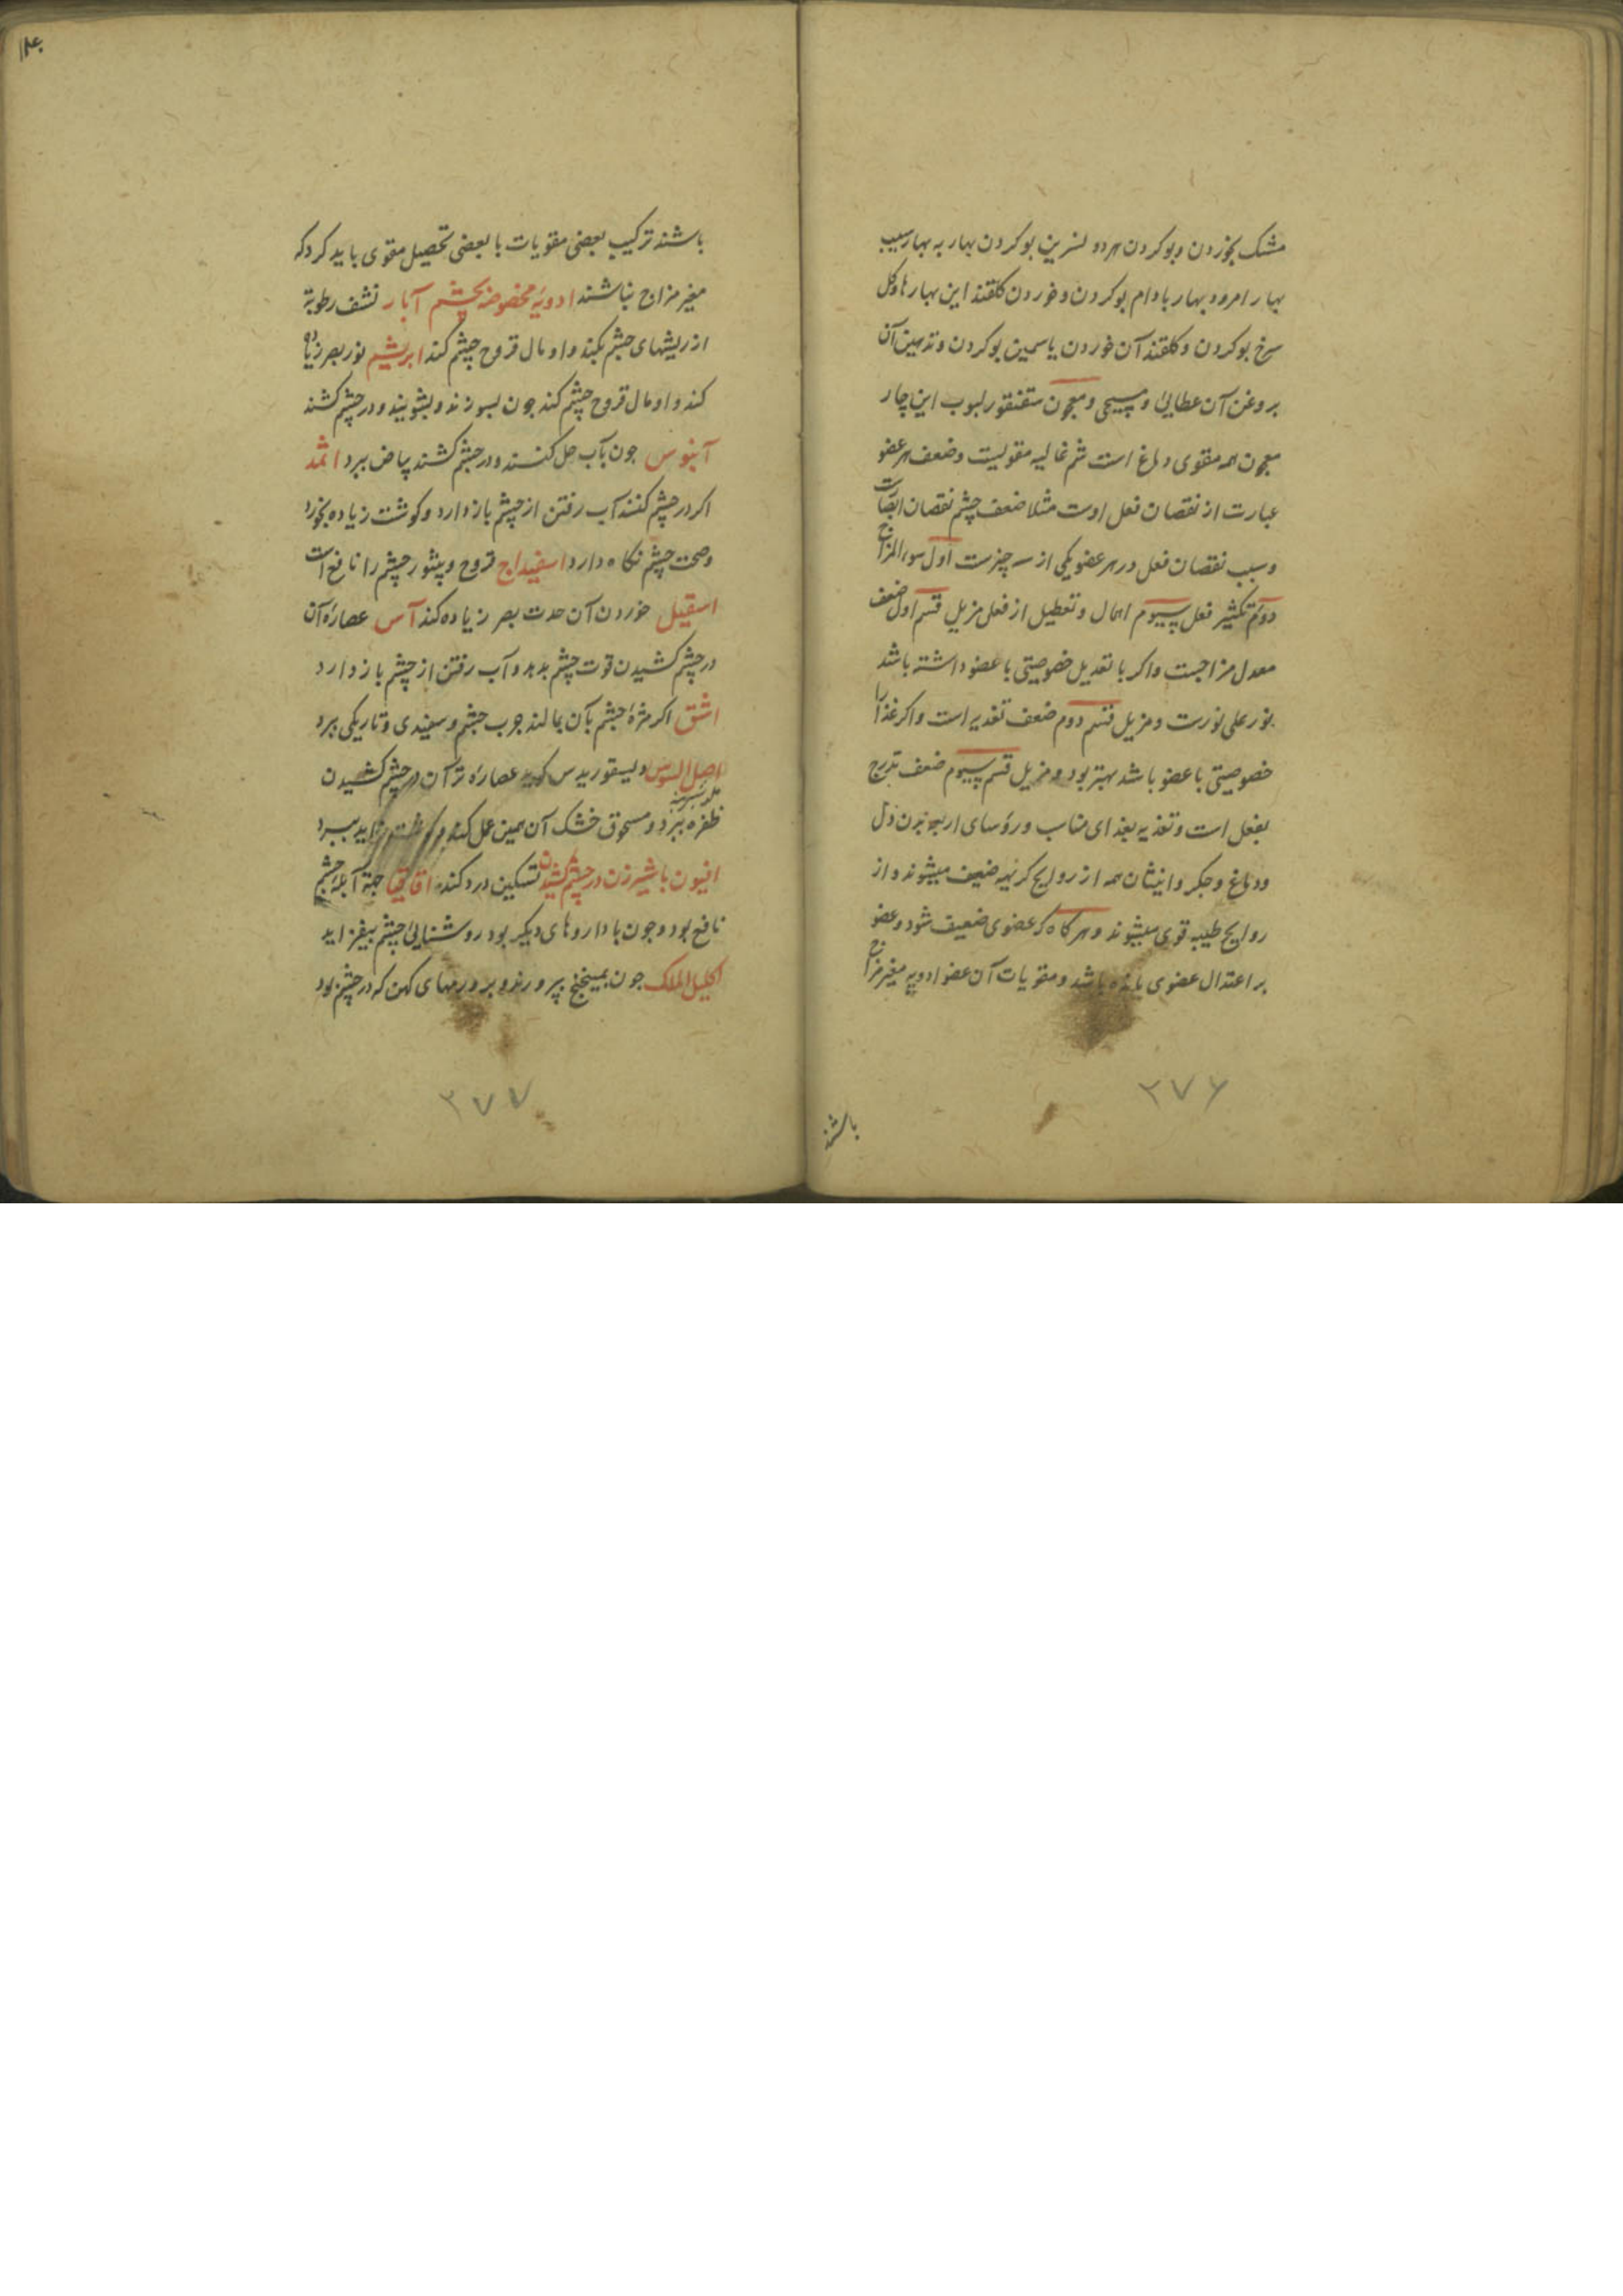 مشک بخوردن و بوکردن هر دو نسرین بوکردن بهار به بهار سیب
بهار امرود بهار بادام بوکردن و خوردن کلقند این بهارها و کل
سرخ بوکردن و کلقند آن خوردن یاسمین بوکردن و تدهین آن
بروغن آن عطایی و مسیحی و معجون سقنقور لبوب این چار
معجون همه مقوی دماغ است شم غالیه مقولیت وضعف هر عضو
عبارت از نقصان فعل اوست مثلا ضعف چشم نقصان ابصارت
وسبب نقصان فعل در هر عضو یکی از سه چیزست اول سوء المزاج
دوم تکثیر فعل سیوم اهمال و تعطیل از فعل مزیل قسم اول ضعف
معدل مزاجست واکر با تعدیل خصوصیتی با عضو داشته باشد
نور علی نورست ومزیل قسم دوم ضعف تغدیه است واکر غذا را
خصوصیتی با عضو باشد بهتر بود ومزیل قسم سیوم ضعف تدریج
بفعل است وتغذیه بغذای مناسب ورؤسای اربعه بدن دل
ودماغ وجکر وانثیان همه از روایح کریهه ضعیف میشوند و از
روایح طیبه قوی میشوند وهرکاه که عضوی ضعیف شود وعضو
بر اعتدال عضوی باشد ومقویات آن عضو ادویه مغیر مزاج
باشند
۲۷۶
۱۴۰
باشند ترکیب بعضی مقویات با بعضی تحصیل مقوی باید کرد که
مغیر مزاج نباشند ادویهٔ مخصوصه بچشم آبار نشف رطوبة
از ریشهای چشم بکند واومال قروح چشم کند ابریشم نور بصر زیاده
کند واومال قروح چشم کند جون بسوزند و بشویند و در چشم کشند
آبنوس جون بآب حل کنند و در چشم کشند بیاض ببرد اثمد
اکر در چشم کنند آب رفتن از چشم باز دارد وکوشت زیاده بخورد
وصحت چشم نکاه دارد اسفیداج قروح وبثور چشم را نافع است
اسقیل خوردن آن حدت بصر زیاده کند آس عصارهٔ آن
در چشم کشیدن قوت چشم بدهد وآب رفتن از چشم باز دارد
اشق اکر مژهٔ چشم بآن بمالند جرب چشم و سفیدی و تاریکی ببرد
اصل السوس دیسقوریدس کوید عصارهٔ تر آن در چشم کشیدن
ظفره ببرد و مسحوق خشک آن همین عمل کند و کوشت زاید ببرد
افیون با شیر زن در چشم کشیدن تسکین درد کند اقاقیا جهة آبلهٔ چشم
نافع بود وجون با داروهای دیکر بود روشنایی چشم بیفزاید
اکلیل الملک جون بمیبختج بپرورند و بر ورمهای کهن که در چشم بود
۲۷۷